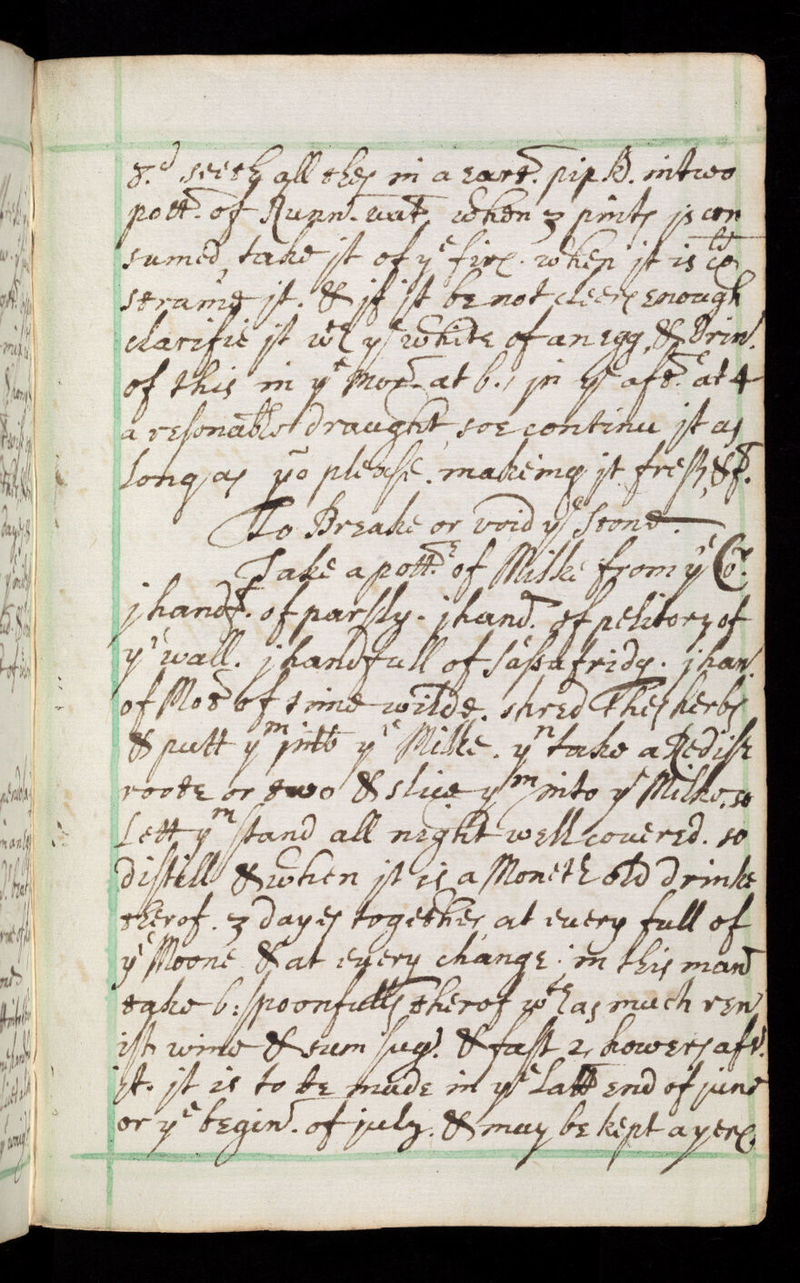 8.d seeth all thes in a eart. pipk. in two
pott. of Runn. wat. when 3 pints is con
sumed, take jt of ye fire. when jt is co
straine jt. & jf jt be not cleere enough
clarifie jt wth ye white of an egg, & drin.
of this in ye Mor. at 6., jn ye aft. at 4
a resonable draught soe continu jt as
long as yo please. makeing jt fresh, &c.
To Breake or void ye stone.
Take a pott.e of Milke from ye Co.
j handf. of parsly. j hand. of pelitory of
ye wall. j handfull of saxafridg. j han.
of Mot of time wilde. shred thes herbs
& putt ym into ye Milke. yn take a Redish
roote or two & slice ym into ye Milke, so
Lett ym stand all night well covered. so
distill & when jt is a Moneth old drinke
therof. 3 dayes together at every full of
ye Moone & at every change. in this man
take 6: spoonfulls therof wth as much ren
ish wine & sum sug. & fast 2 howers aft.
jt. jt is to be made in ye latt end of june
or ye begin. of july. & may be kept a yere.